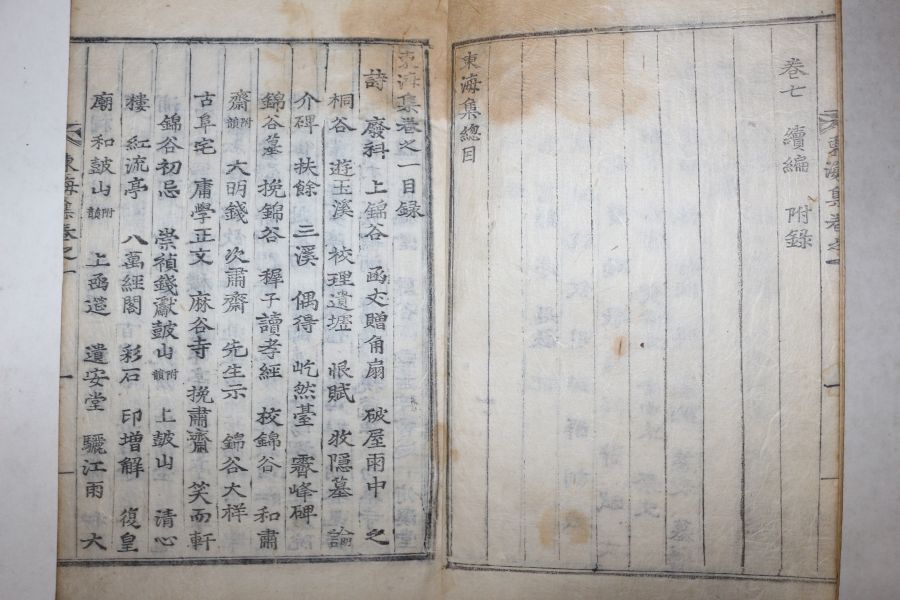 卷七 續編 附錄
東海集總目
東海集卷之一目錄
詩 廢科 上錦谷 函丈贈角扇 破屋雨中 之
桐谷 遊玉溪 校理遺墟 恨賦 牧隱墓 論
介碑 扶餘 三溪 偶得 屹然臺 霽峰碑
錦谷墓 挽錦谷 穉子讀孝經 校錦谷 和肅
齋附韻 大明錢 次肅齋 先生示 錦谷大祥
古阜宅 庸學正文 麻谷寺 挽肅齋 笑而軒
錦谷初忌 崇禎錢獻鼓山附韻 上鼓山 清心
樓 紅流亭 八萬經閣 彩石 印增解 復皇
廟 和鼓山附韻 上函筵 遺安堂 驪江雨 大
東海集卷之一 一